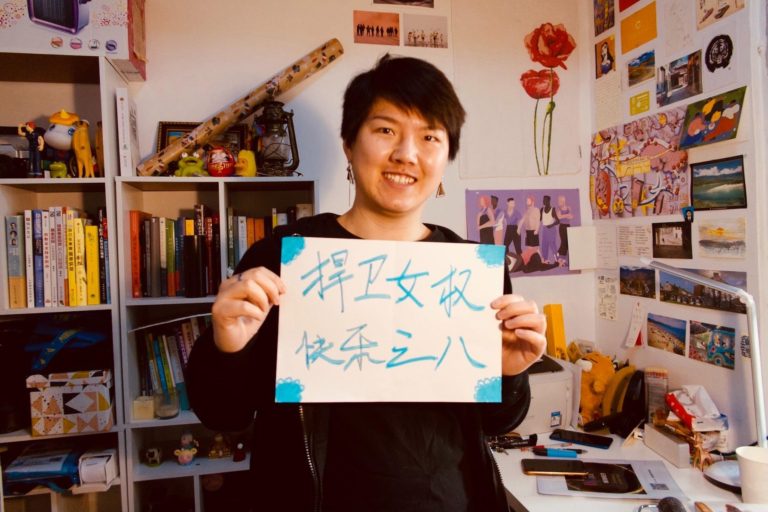 捍卫女权
快乐三八